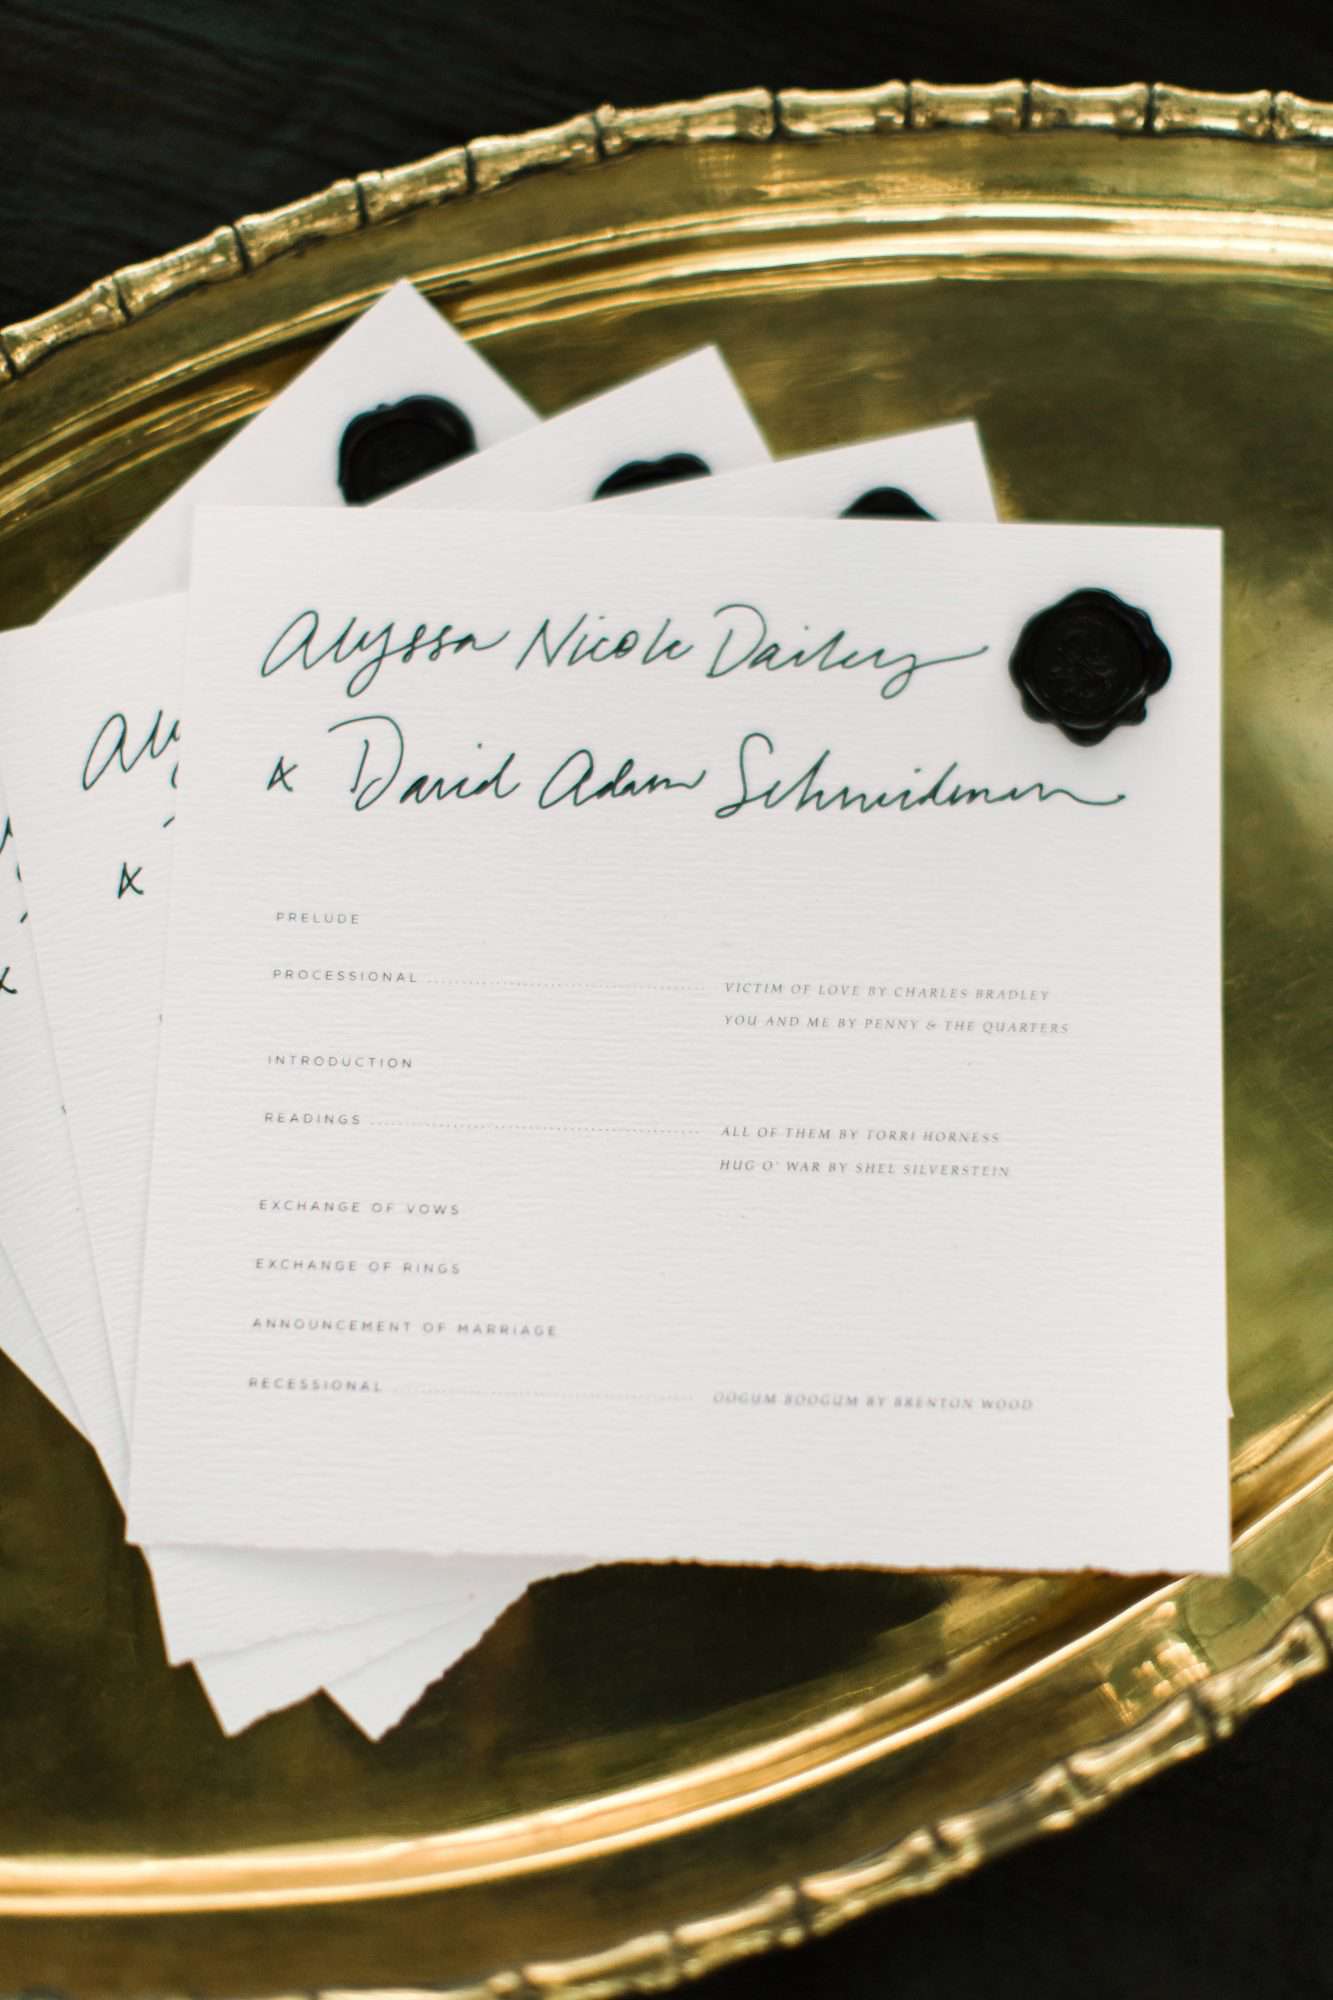 Alyssa Nicole Dailey
& David Adam Schneidman
PRELUDE
PROCESSIONAL
VICTIM OF LOVE BY CHARLES BRADLEY
YOU AND ME BY PENNY & THE QUARTERS
INTRODUCTION
READINGS
ALL OF THEM BY TORRI HORNESS
HUG O' WAR BY SHEL SILVERSTEIN
EXCHANGE OF VOWS
EXCHANGE OF RINGS
ANNOUNCEMENT OF MARRIAGE
RECESSIONAL
OOGUM BOOGUM BY BRENTON WOOD
Aly
&